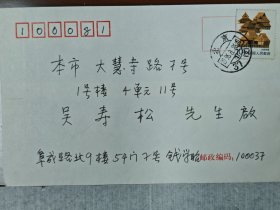 100081
本市大慧寺路8号
1号楼4单元11号
吴寿松 先生啟
阜成路北9楼54门7号 钱学 邮政编码：100037